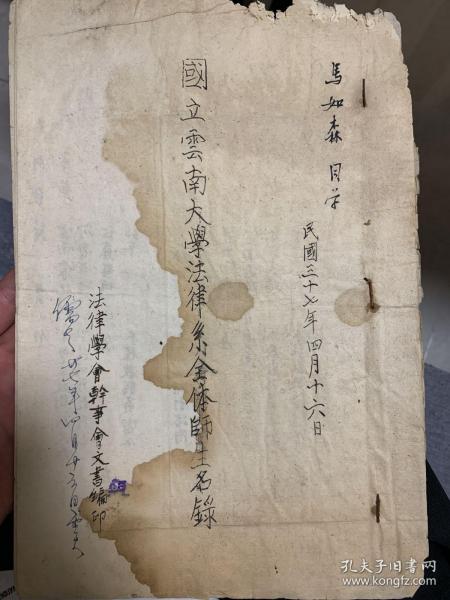 馬如森 同学
民國三十七年四月十六日
國立雲南大學法律系全体師生名錄
法律學會幹事會文書編印
卅七年四月廿六日
孔夫子旧书网
www.kongfz.com